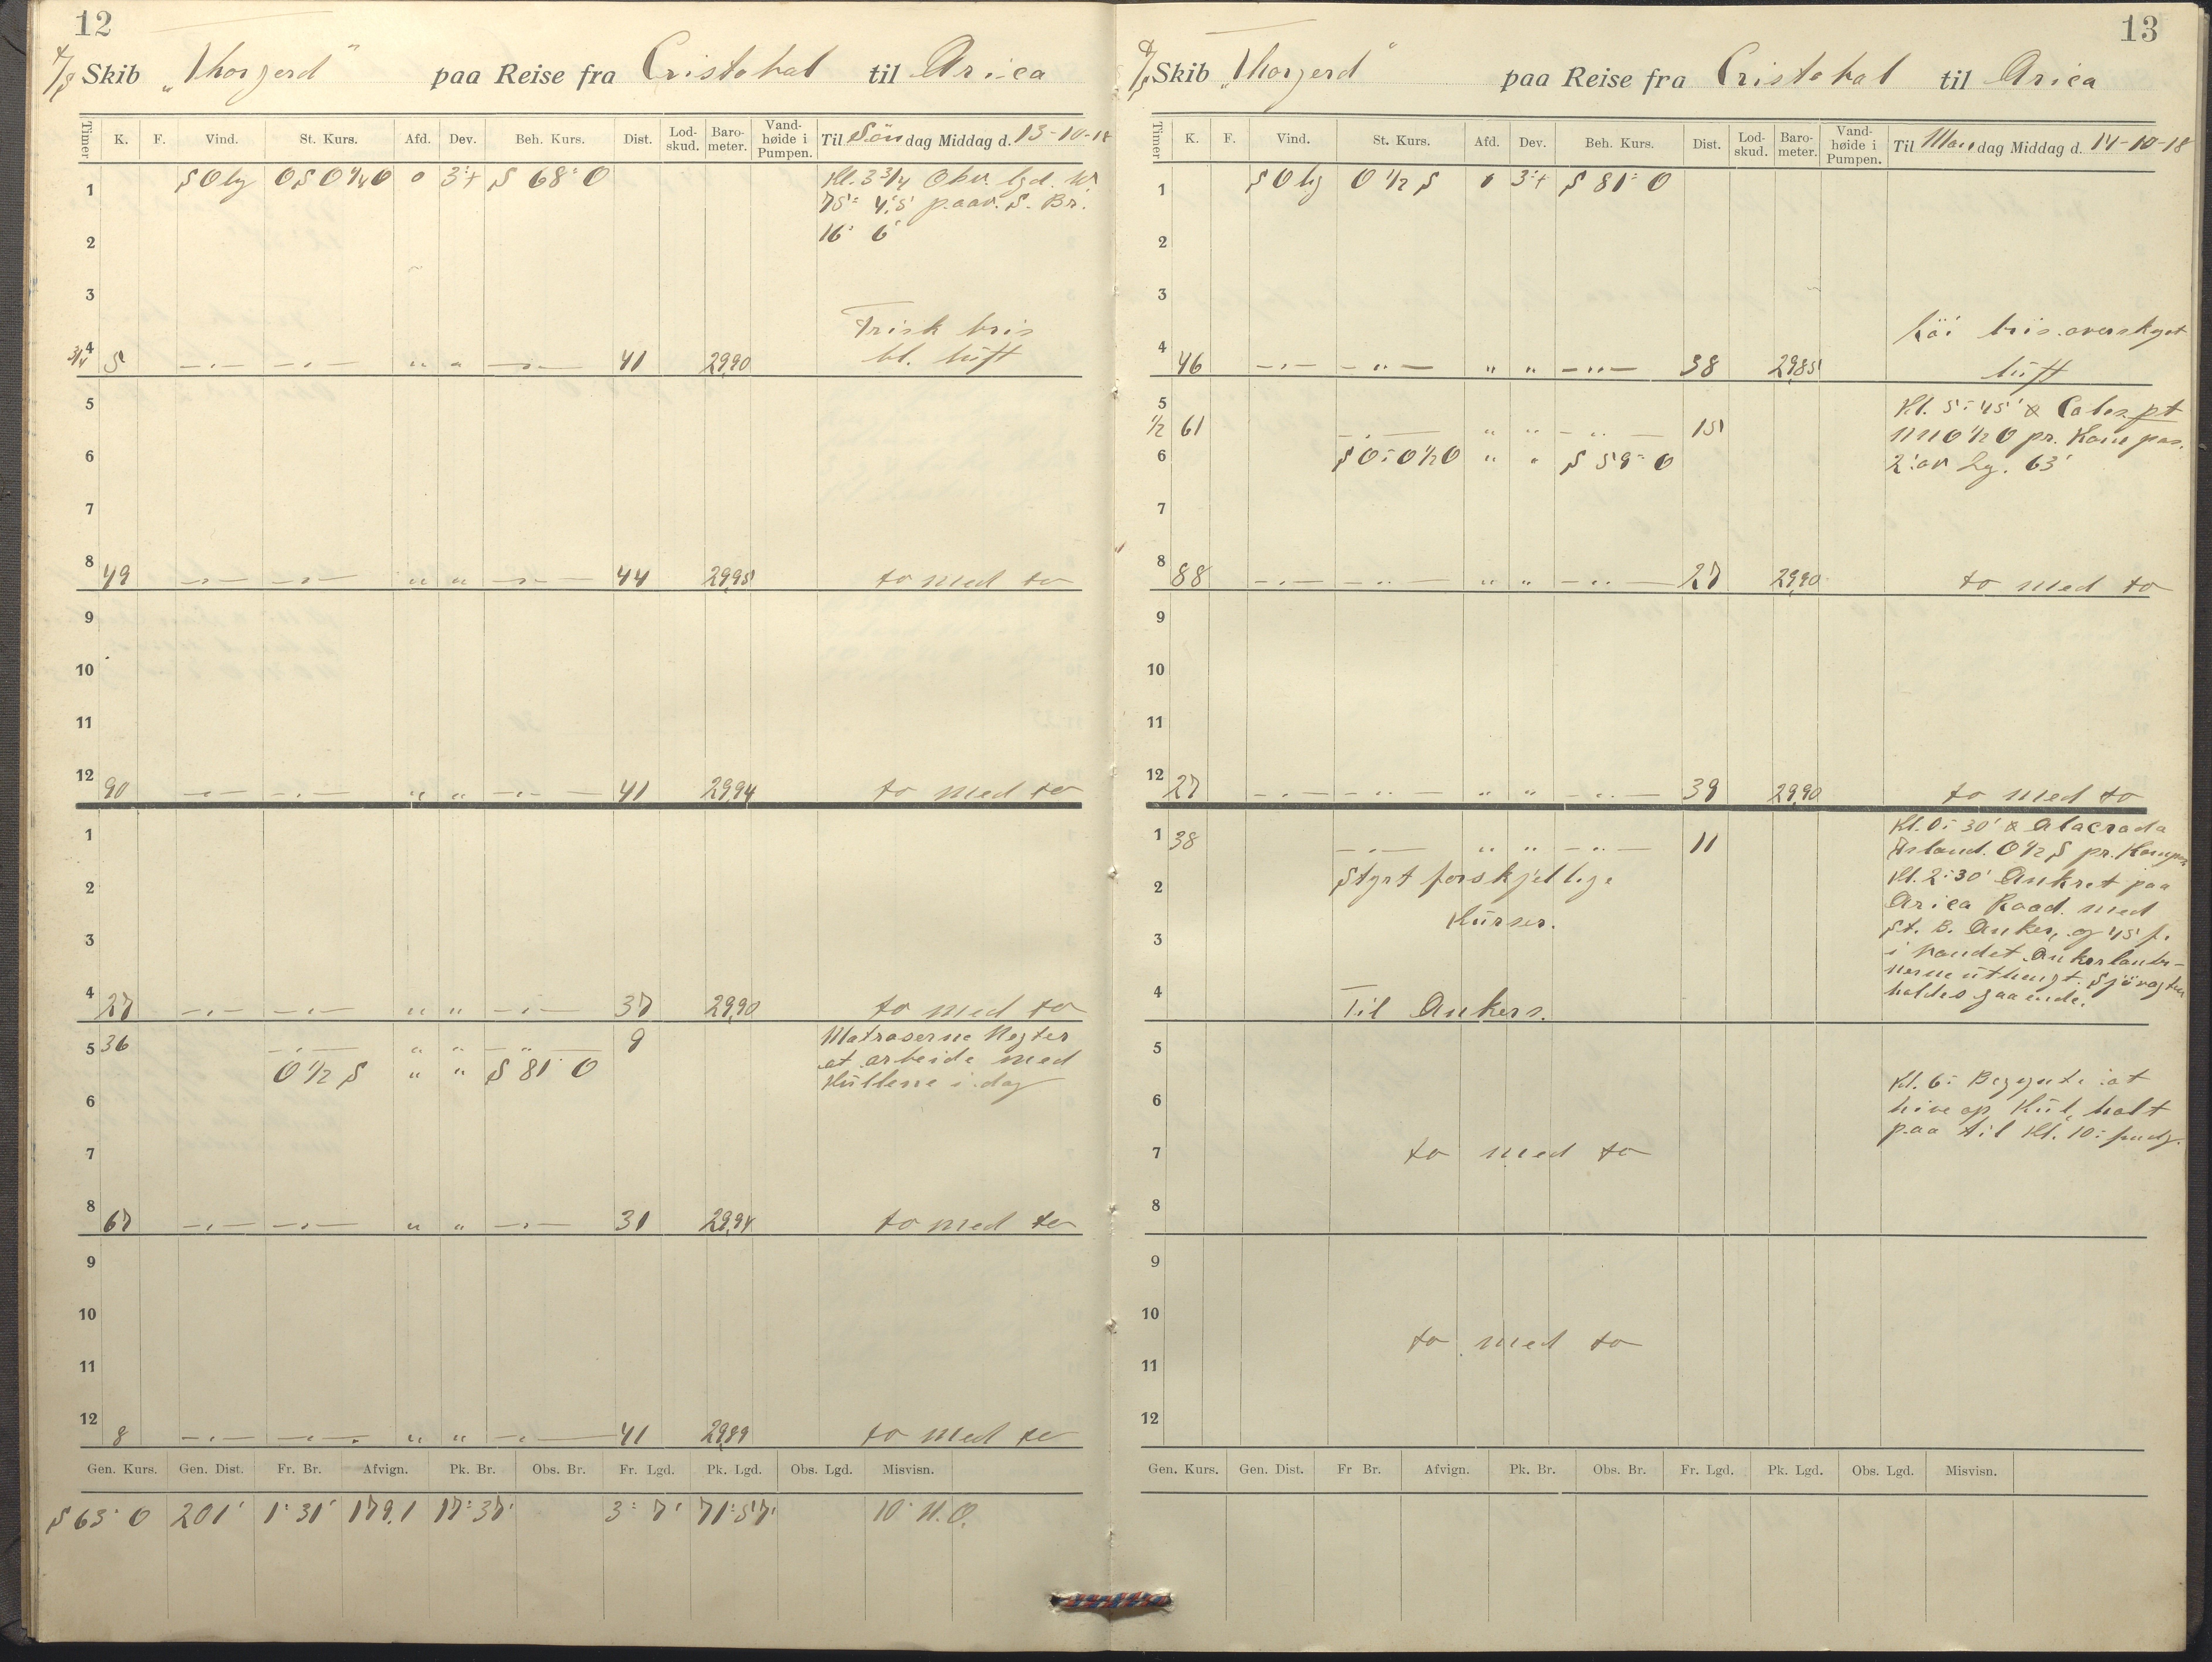 12
Skib „Thorgerd" paa Reise fra Cristobal til Arica
Timer K. F. Vind. St. Kurs. Afd. Dev. Beh. Kurs. Dist. Lod-skud. Baro-meter. Vand-høide i Pumpen. Til Søndag Middag d. 13-10-18
1 SOly OSO¼O 0 3°+ S 68° O Kl. 3¾ Obv. lgd. W.
75° 4,5' paav. S. Br.
2 16° 6'
3
Frisk bris
¾ 4 5 —〃— —〃— 〃 〃 —〃— 41 29,90 bl. luft
5
6
7
8 49 —〃— —〃— 〃 〃 —〃— 44 29,95 to med to
9
10
11
12 90 —〃— —〃— 〃 〃 —〃— 41 29,94 to med to
1
2
3
4 27 —〃— —〃— 〃 〃 —〃— 37 29,90 to med to
5 36 —〃— 〃 〃 —〃— 9 Matroserne Negter
O ½ S 〃 〃 S 81° O at arbeide med
6 Kullene i dag
7
8 67 —〃— —〃— 〃 〃 —〃— 31 29,94 to med to
9
10
11
12 8 —〃— —〃— 〃 〃 —〃— 41 29,89 to med to
Gen. Kurs. Gen. Dist. Fr. Br. Afvign. Pk. Br. Obs. Br. Fr. Lgd. Pk. Lgd. Obs. Lgd. Misvisn.
S 63° O 201' 1° 31' 179,1 17° 37' 3° 7' 71° 57' 10° N.O.
13
Skib „Thorgerd" paa Reise fra Cristobal til Arica
Timer K. F. Vind. St. Kurs. Afd. Dev. Beh. Kurs. Dist. Lod-skud. Baro-meter. Vand-høide i Pumpen. Til Mandag Middag d. 14-10-18
1 SOly O ½ S 0 3°+ S 81° O
2
3
Löi bris. overskyet
4 46 —〃— —〃— 〃 〃 —〃— 38 29,85 luft
5 Kl. 5-45' Coles pt
½ 61 —〃— 〃 〃 —〃— 15 NNO½O pr. Kompas.
6 SO-O½O 〃 〃 S 59° O 2' av Lg. 63'
7
8 88 —〃— —〃— 〃 〃 —〃— 27 29,90 to med to
9
10
11
12 27 —〃— —〃— 〃 〃 —〃— 39 29,90 to med to
1 38 —〃— 〃 〃 —〃— 11 Kl. 0-30' Alacrada
Island. O½S pr. Kompas
2 Styrt forskjellige Kl. 2-30' Ankret paa
Kurser. Arica Raad. med
3 St. B. Anker, og 45 f.
i vandet. Ankerlanter-
nerne uthengt. Sjövagten
4 Til Ankers. holdes gaaende.
5
Kl. 6- Begynte at
6 hive op Kul, holt
paa til Kl. 10-
7 to med to
8
9
10
to med to
11
12
Gen. Kurs. Gen. Dist. Fr Br. Afvign. Pk. Br. Obs. Br. Fr. Lgd. Pk. Lgd. Obs. Lgd. Misvisn.